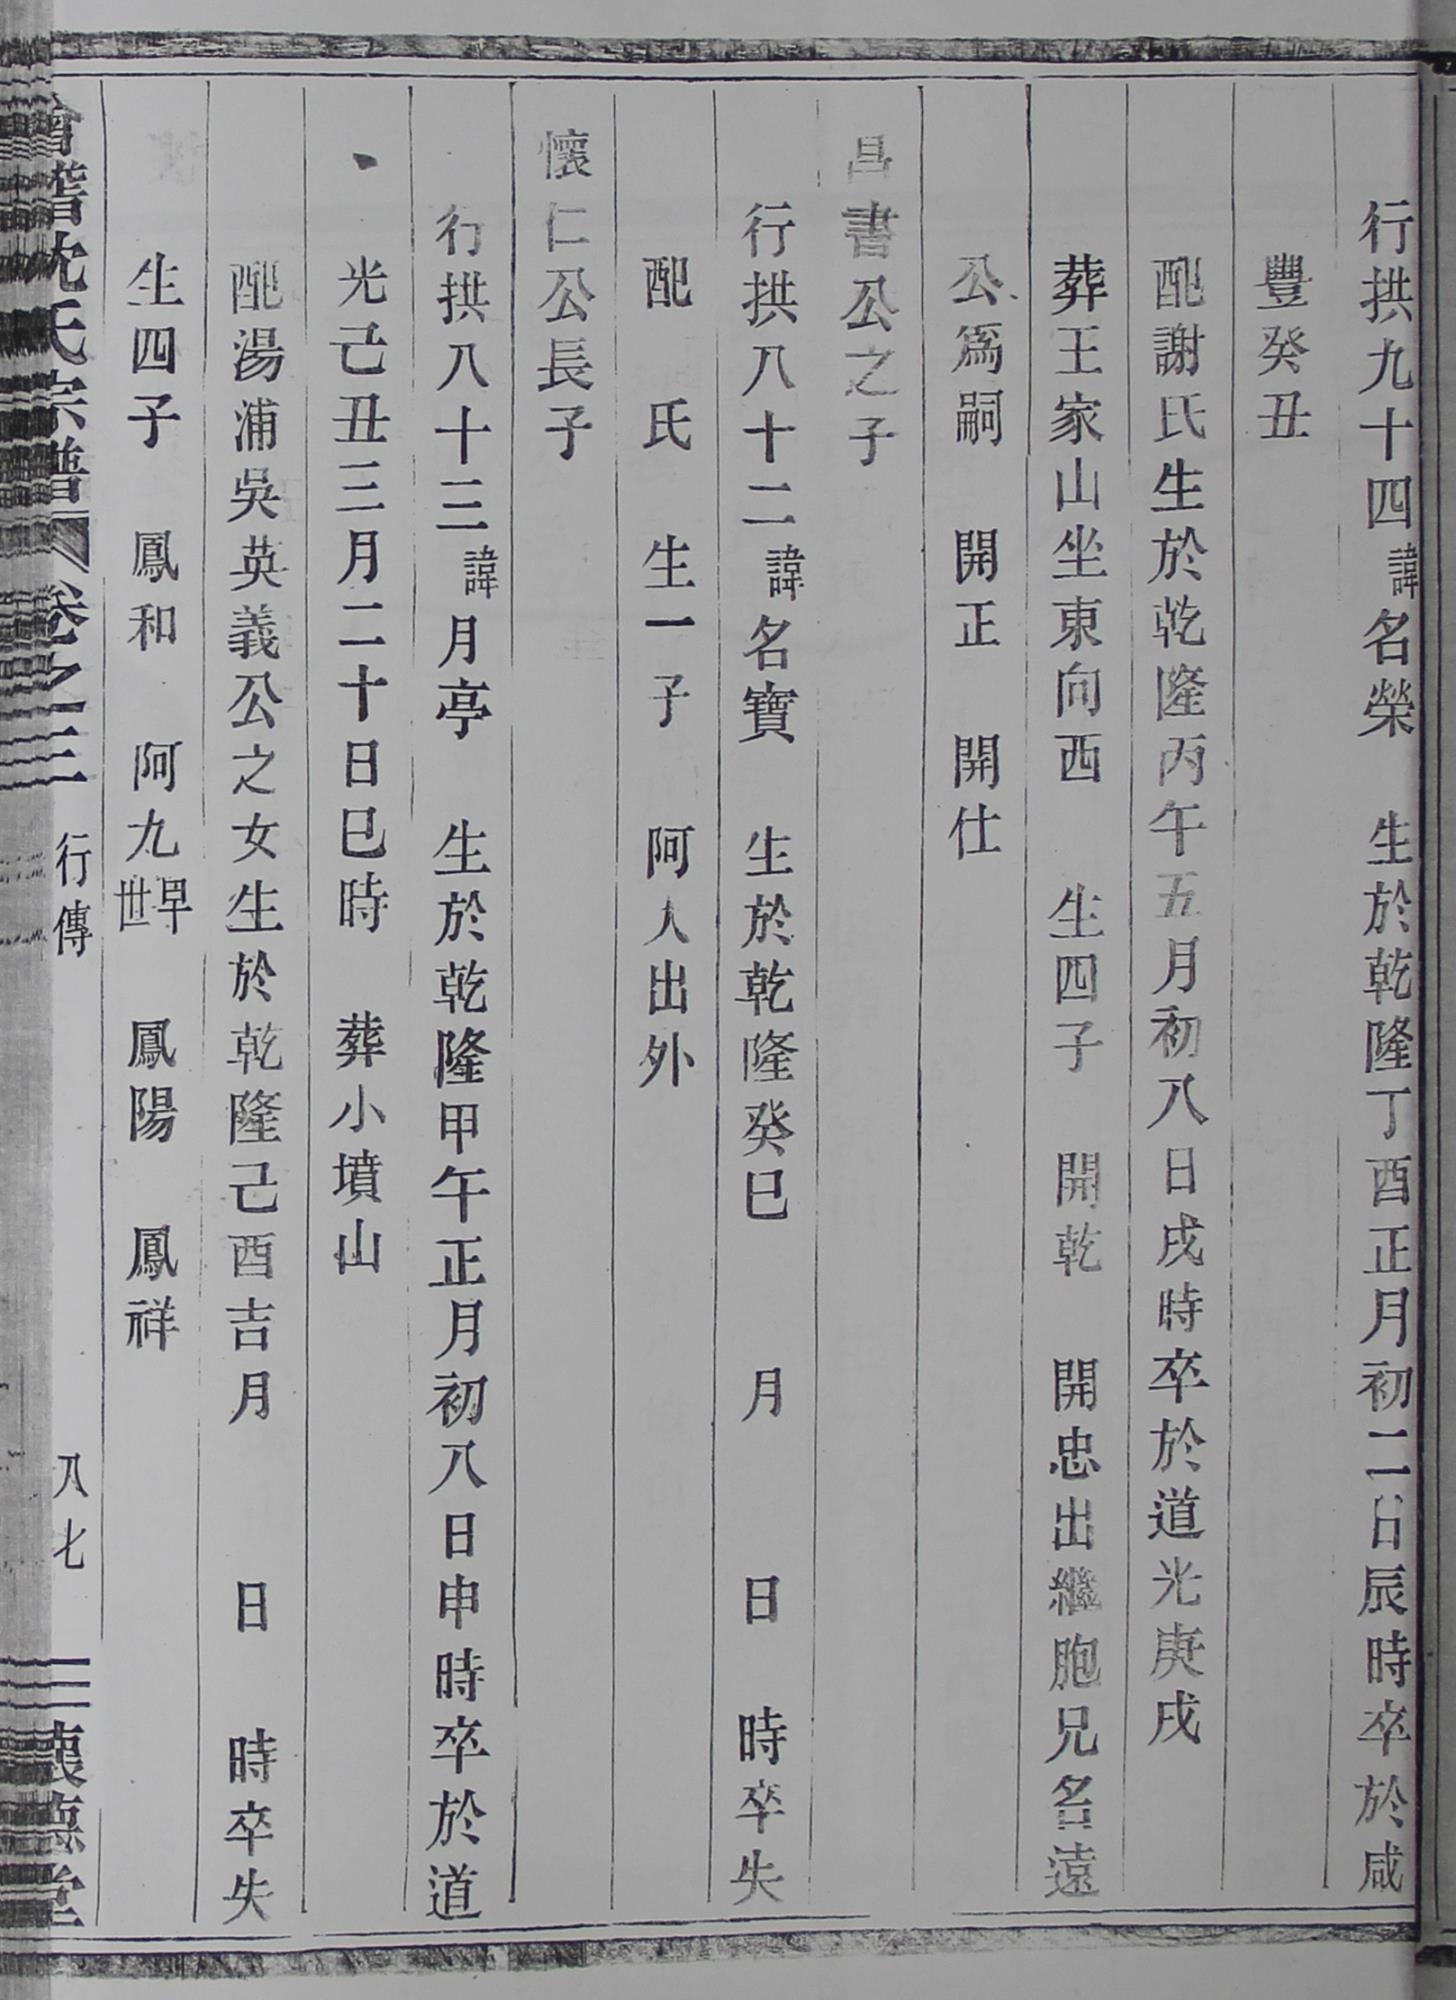 行拱九十四諱名榮　生於乾隆丁酉正月初二日辰時卒於咸
豐癸丑
配謝氏生於乾隆丙午五月初八日戌時卒於道光庚戌
葬王家山坐東向西　生四子　開乾　開忠出繼胞兄名遠
公爲嗣　開正　開仕
昌書公之子
行拱八十二諱名寶　生於乾隆癸巳　月　日　時卒失
配　氏　生一子　阿人出外
懷仁公長子
行拱八十三諱月亭　生於乾隆甲午正月初八日申時卒於道
光己丑三月二十日巳時　葬小墳山
配湯浦吳英義公之女生於乾隆己酉吉月　日　時卒失
生四子　鳳和　阿九早世　鳳陽　鳳祥
會稽沈氏宗譜　卷之三　行傳　八七　懷德堂